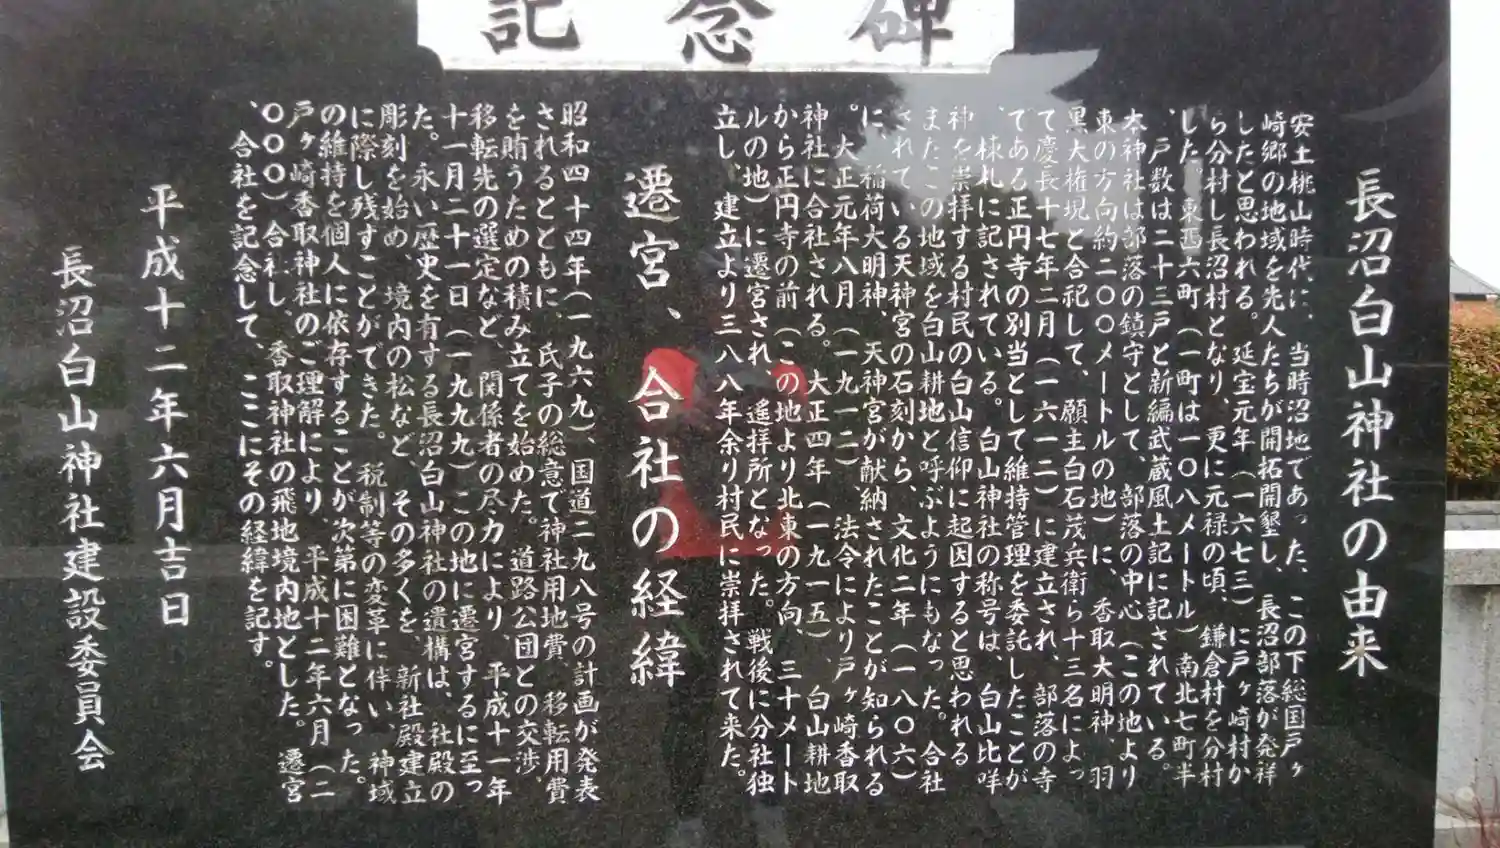 記念碑
長沼白山神社の由来
安土桃山時代に、当時沼地であった、この下総国戸ヶ
崎郷の地域を先人たちが開拓開墾し、長沼部落が発祥
したと思われる。延宝元年(一六七三)に戸ヶ崎村か
ら分村し長沼村となり、更に元禄の頃、鎌倉村を分村
した。東西六町(一町は一〇八メートル)南北七町半
、戸数は二十三戸と新編武蔵風土記に記されている。
本神社は部落の鎮守として、部落の中心(この地より
東の方向約二〇〇メートルの地)に、香取大明神、羽
黒大権現と合祀して、願主白石茂兵衛ら十三名によっ
て慶長十七年二月(一六一二)に建立され、部落の寺
である正円寺の別当として維持管理を委託したことが
、棟札に記されている。白山神社の称号は、白山比咩
神を崇拝する村民の白山信仰に起因すると思われる
またこの地域を白山耕地と呼ぶようにもなった。合社
されている天神宮の石刻から、文化二年(一八〇六)
に、稲荷大明神、天神宮が献納されたことが知られる
。大正元年八月(一九一二)法令により戸ヶ崎香取
神社に合社される。大正四年(一九一五)、白山耕地
から正円寺の前(この地より北東の方向、三十メート
ルの地)に遷宮され、遙拝所となった。戦後に分社独
立し、建立より三八八年余り村民に崇拝されて来た。
遷宮、合社の経緯
昭和四十四年(一九六九)、国道二九八号の計画が発表
されるとともに、氏子の総意で神社用地費、移転用費
を賄うための積み立てを始めた。道路公団との交渉、
移転先の選定など、関係者の尽力により、平成十一年
十一月二十一日(一九九九)この地に遷宮するに至っ
た。永い歴史を有する長沼白山神社の遺構は、社殿の
彫刻を始め、境内の松など、その多くを、新社殿建立
に際し残すことができた。税制等の変革に伴い、神域
の維持を個人に依存することが次第に困難となった。
戸ヶ崎香取神社のご理解により、平成十二年六月(二
〇〇〇)合社し、香取神社の飛地境内地とした。遷宮
、合社を記念して、ここにその経緯を記す。
平成十二年六月吉日
長沼白山神社建設委員会